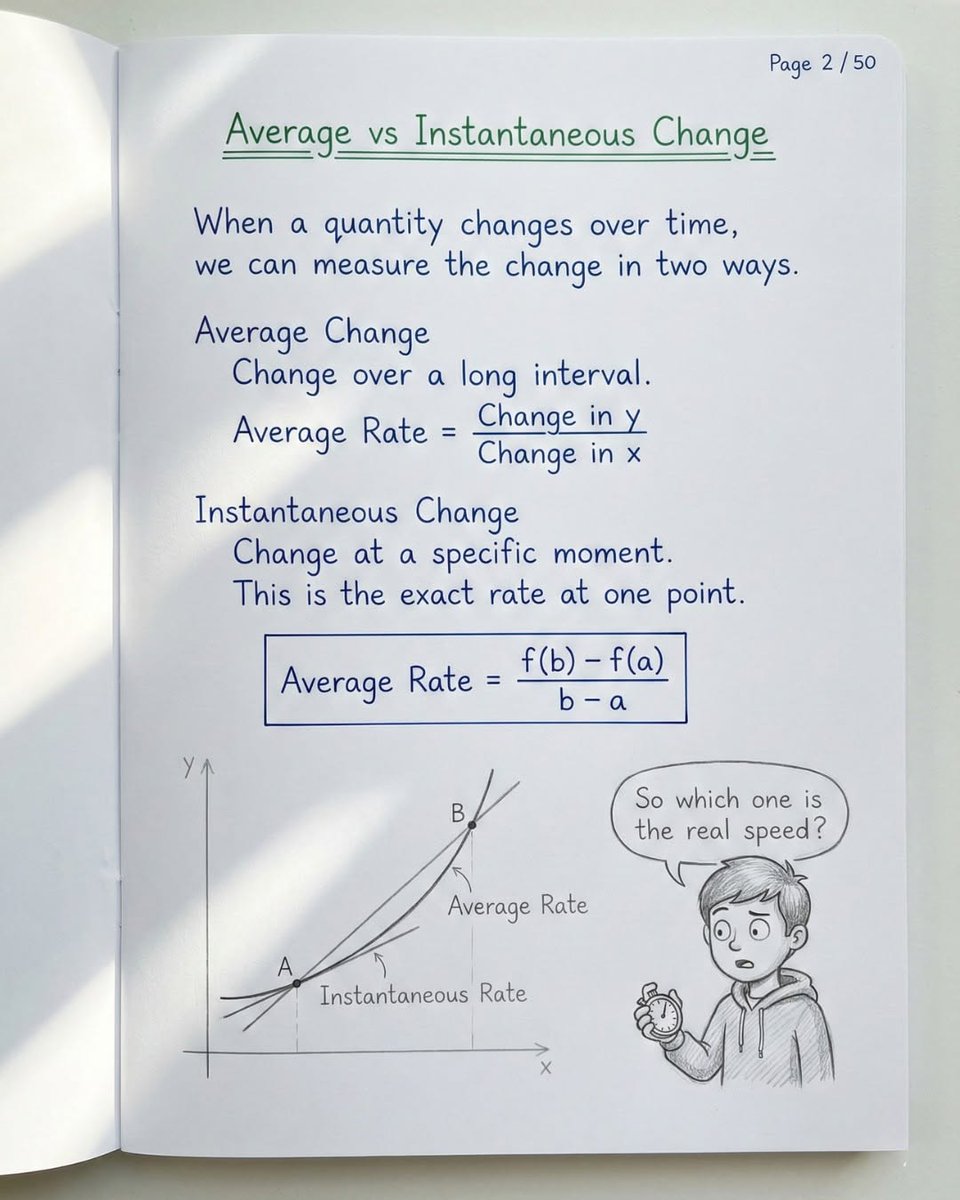 Page 2 / 50
Average vs Instantaneous Change
When a quantity changes over time,
we can measure the change in two ways.
Average Change
Change over a long interval.
Average Rate = Change in y
Change in x
Instantaneous Change
Change at a specific moment.
This is the exact rate at one point.
Average Rate = f(b) − f(a)
b − a
y
B
Average Rate
A
Instantaneous Rate
x
So which one is
the real speed?